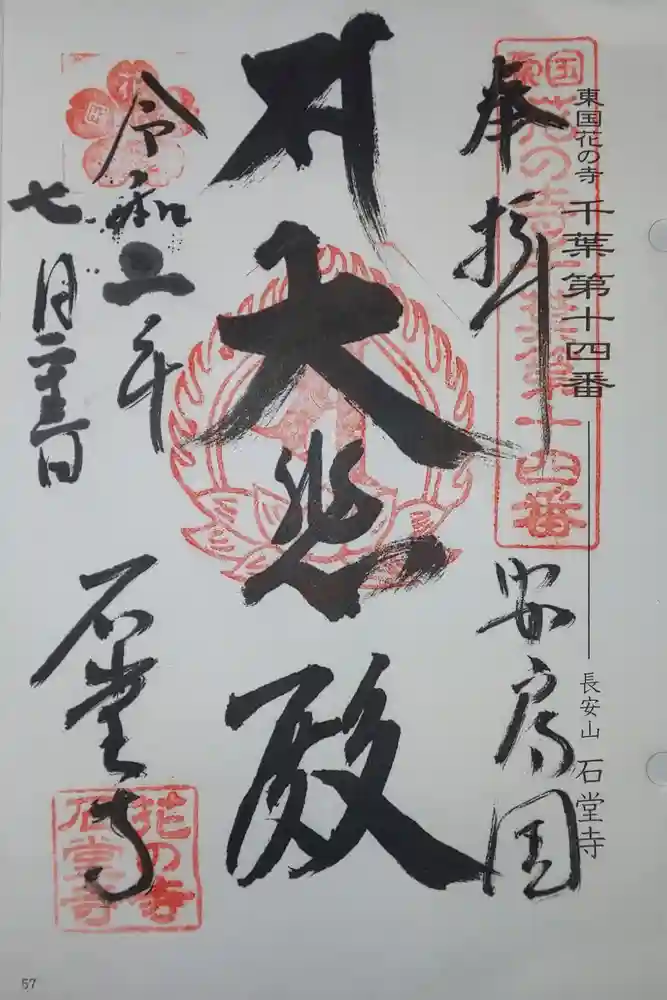 東国花の寺 千葉第十四番
長安山 石堂寺
東国花の寺千葉第十四番
奉拝
安房国
大悲殿
令和二年
七月二十三日
石堂寺
花の寺
石堂寺
57